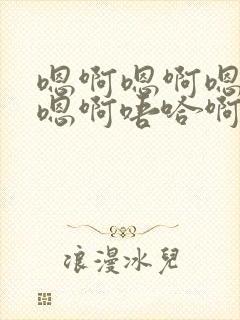 嗯啊嗯啊嗯
嗯啊唔哈啊
浪漫冰兒